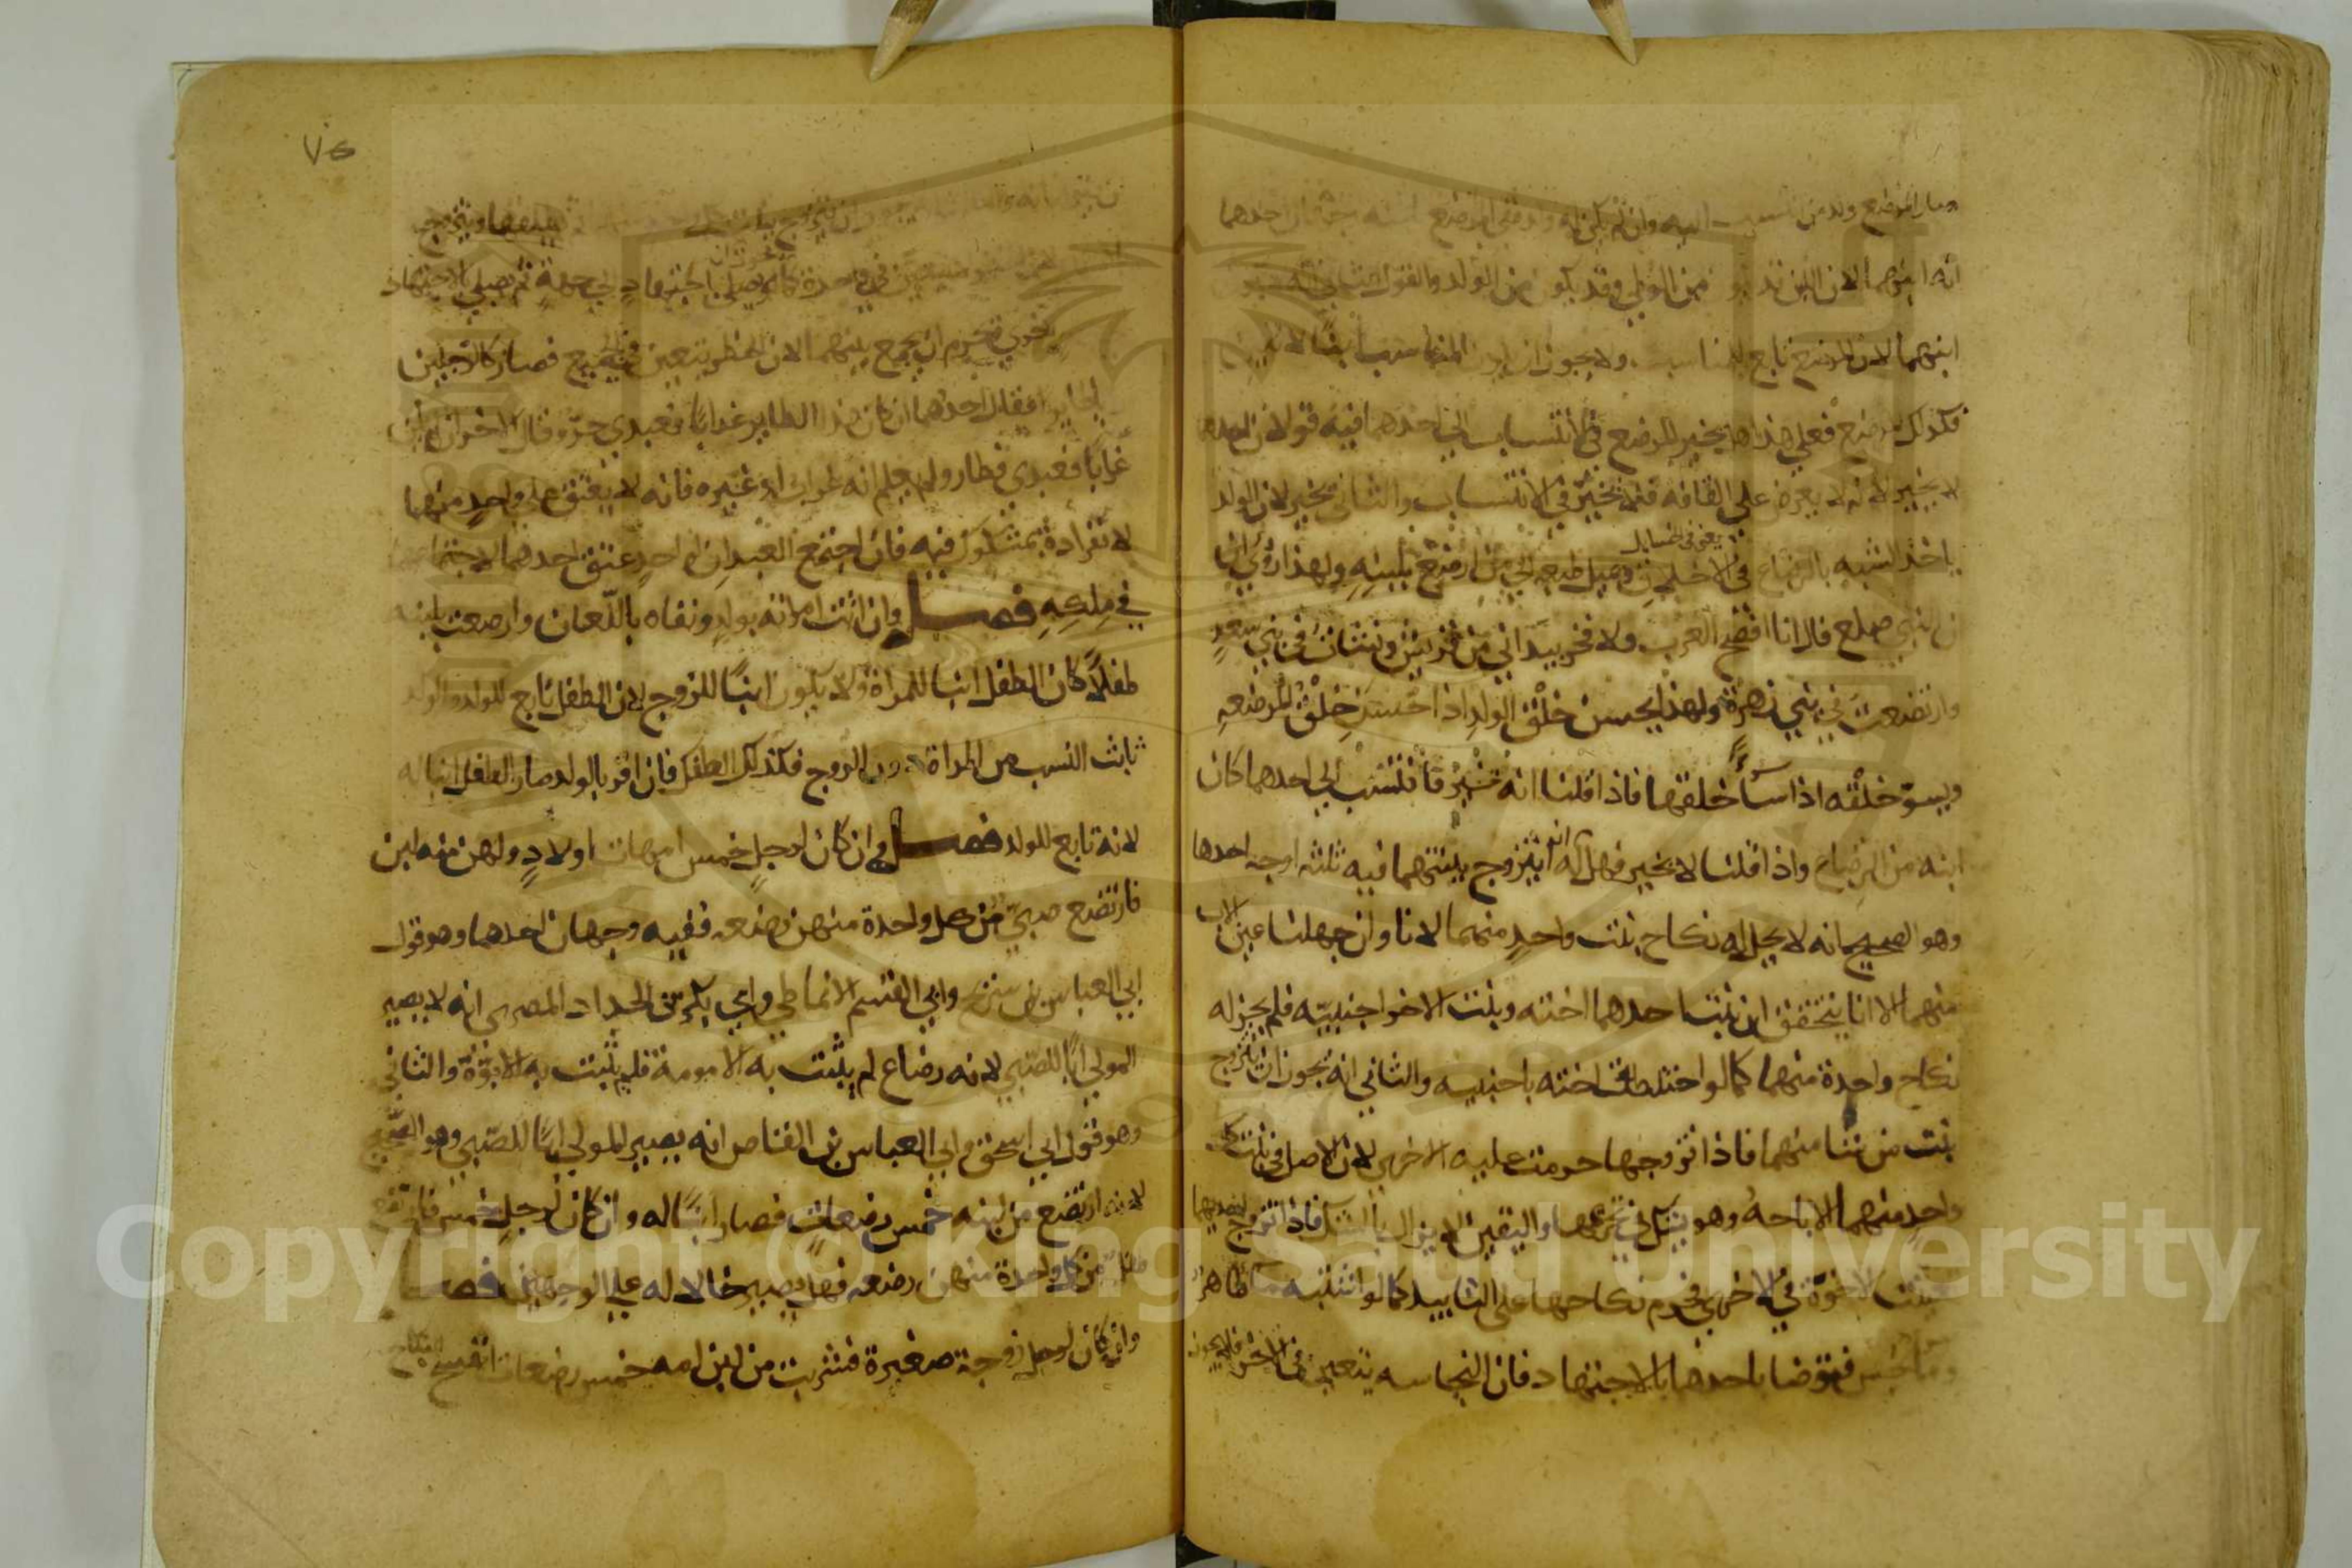 وصار المرضع ولد من انتسب اليه وان لم يكن له ولد ففي المرضع احدهما
انه ابنهما لان اللبن قد يكون من الوطي وقد يكون من الولد والقول الثاني انه
ابنهما لان المرضع تابع للمناسب ولا يجوز ان يكون المناسب ابنا لاثنين
فكذلك المرضع فعلى هذا هل يخير المرضع في الانتساب الى احدهما فيه قولان احدهما
لا يخير لانه لا يعرض على القافه فلا يخير في الانتساب والثاني يخير لان الولد
يعني في الشمايل
ياخذ الشبه بالرضاع في الاخلاق ويميل طبعه الى من ارتضع بلبنه ولهذا روي ان
النبي صلعم قال انا افصح العرب ولا فخر بيد اني من قريش ونشات في بني سعد
وارتضعت في بني زهرة ولهذا يحسن خلق الولد اذا حسن خلق المرضعه
ويسؤ خلقه اذا سا خلقها فاذا قلنا انه يخير فانتسب الى احدهما كان
ابنه من الرضاع واذا قلنا لا يخير فهل له ان يتزوج ببنتهما فيه ثلثه اوجه احدها
وهو الصحيح انه لا يحل له نكاح بنت واحد منهما لانا وان جهلنا عين الاب
منهما الا انا نتحقق ان بنت احدهما اخته وبنت الاخر اجنبيه فلم يجز له
نكاح واحدة منهما كما لو اختلطت اخته باجنبيه والثاني انه يجوز ان يتزوج
بنت من شا منهما فاذا تزوجها حرمت عليه الاخرى لان الاصل في بنت كل
واحد منهما الاباحه وهو يشك في تحريمها واليقين لا يزال بالشك فاذا تزوج احديهما
تعينت الاخوة في الاخرى فحرم نكاحها على التابيد كما لو اشتبه ما طاهر
وما نجس فتوضا باحدهما بالاجتهاد فان النجاسه تتعين في الاخر فلا يجوز
٧٥
ان يتوضا به والثالث انه يجوز ان يتزوج بنت كل واحد منهما ثم يطلقها ويتزوج
الاخرى في واحدة كما يجوز ان يصلي بالاجتهاد الى جهة ثم يصلي بالاجتهاد
الى جهة اخرى ويحرم ان يجمع بينهما لان الحظر يتعين في الجميع فصار كالرجلين
اذا رايا طايرا فقال احدهما ان كان هذا الطاير غرابا فعبدي حر وقال الاخر ان لم يكن
غرابا فعبدي فطار ولم يعلم انه غراب او غيره فانه لا يعتق على واحد منهما
لانفراده بملك مشكوك فيه فان اجتمع العبدان لواحد عتق احدهما لاجتماعهما
في ملكه فصل وان اتت امراته بولد ونفاه باللعان وارضعت بلبنه
طفلا كان الطفل ابنا للمراة ولا يكون ابنا للزوج لان الطفل تابع للولد والولد
ثابت النسب من المراة دون الزوج فكذلك الطفل فان اقر بالولد صار الطفل ابنا له
لانه تابع للولد فصل وان كان لرجل خمس امهات اولاد ولهن منه لبن
فارتضع صبي من كل واحدة منهن رضعه ففيه وجهان احدهما وهو قول
ابي العباس بن سريج وابي القسم الانماطي وابي بكر بن الحداد المصري انه لا يصير
المولى ابا للصبي لانه رضاع لم يثبت به الامومة فلم يثبت به الابوة والثاني
وهو قول ابي اسحق وابي العباس بن القاص انه يصير المولى ابا للصبي وهو الصحيح
لانه ارتضع من لبنه خمس رضعات فصار ابنا له وان كان لرجل خمس فارتضع
طفل من كل واحدة منهن رضعه فهل يصير خالا له على الوجهين فصل
وان كان لرجل زوجة صغيرة فشربت من لبن امه خمس رضعات انفسخ النكاح